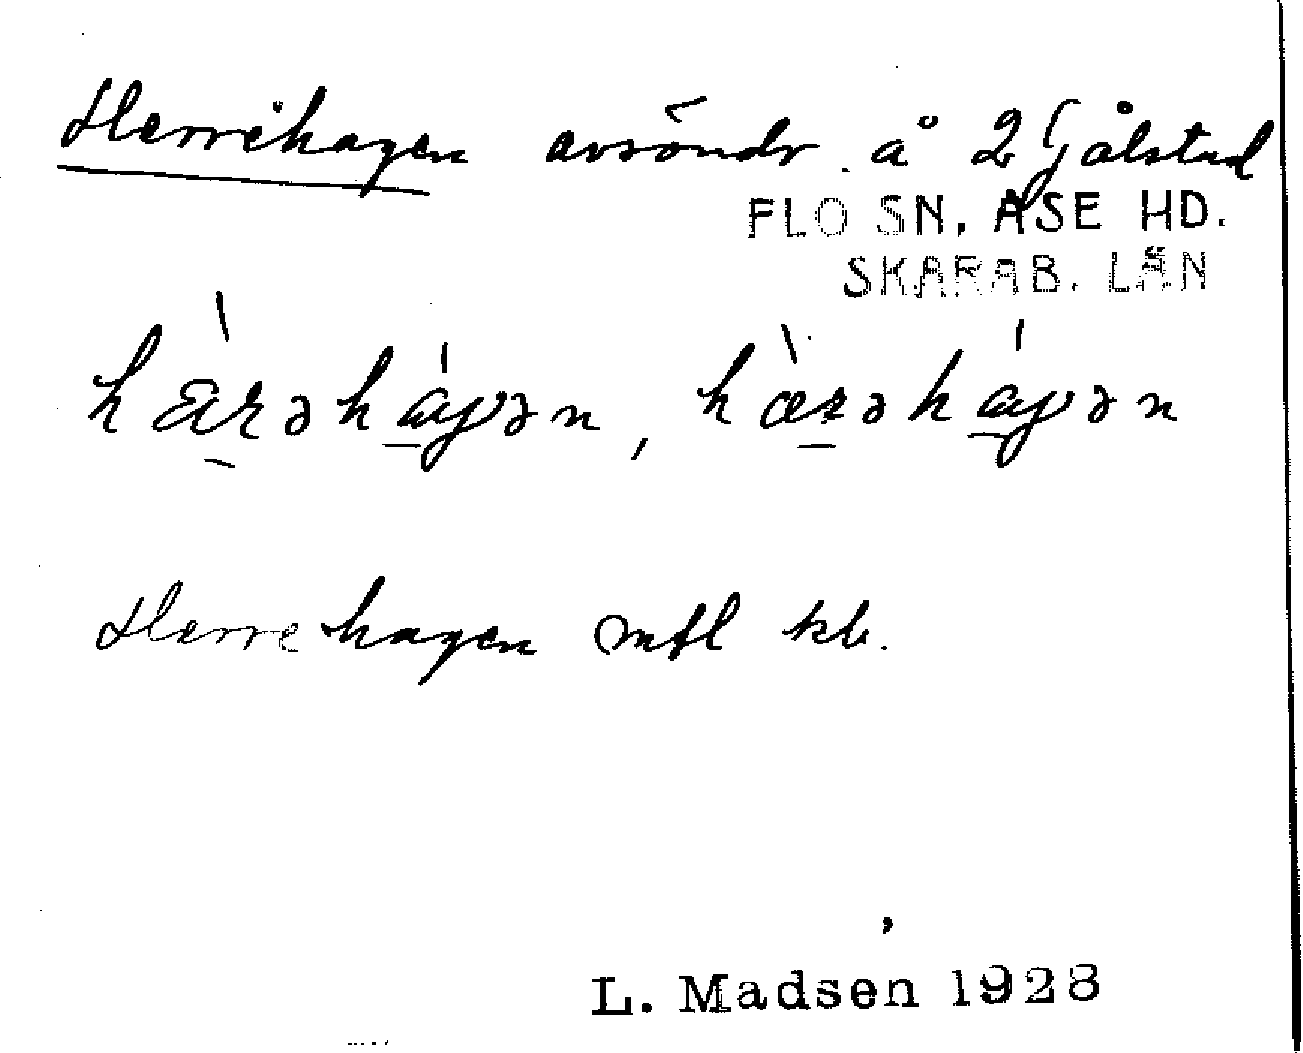 Herrehagen avsöndr. å 2 Gålstad
FLO SN. ÅSE HD.
SKARAB. LÄN
hæ̀rəháɡən, hæ̀rəháɡən
Herrehagen mtl kb.
L. Madsen 1928